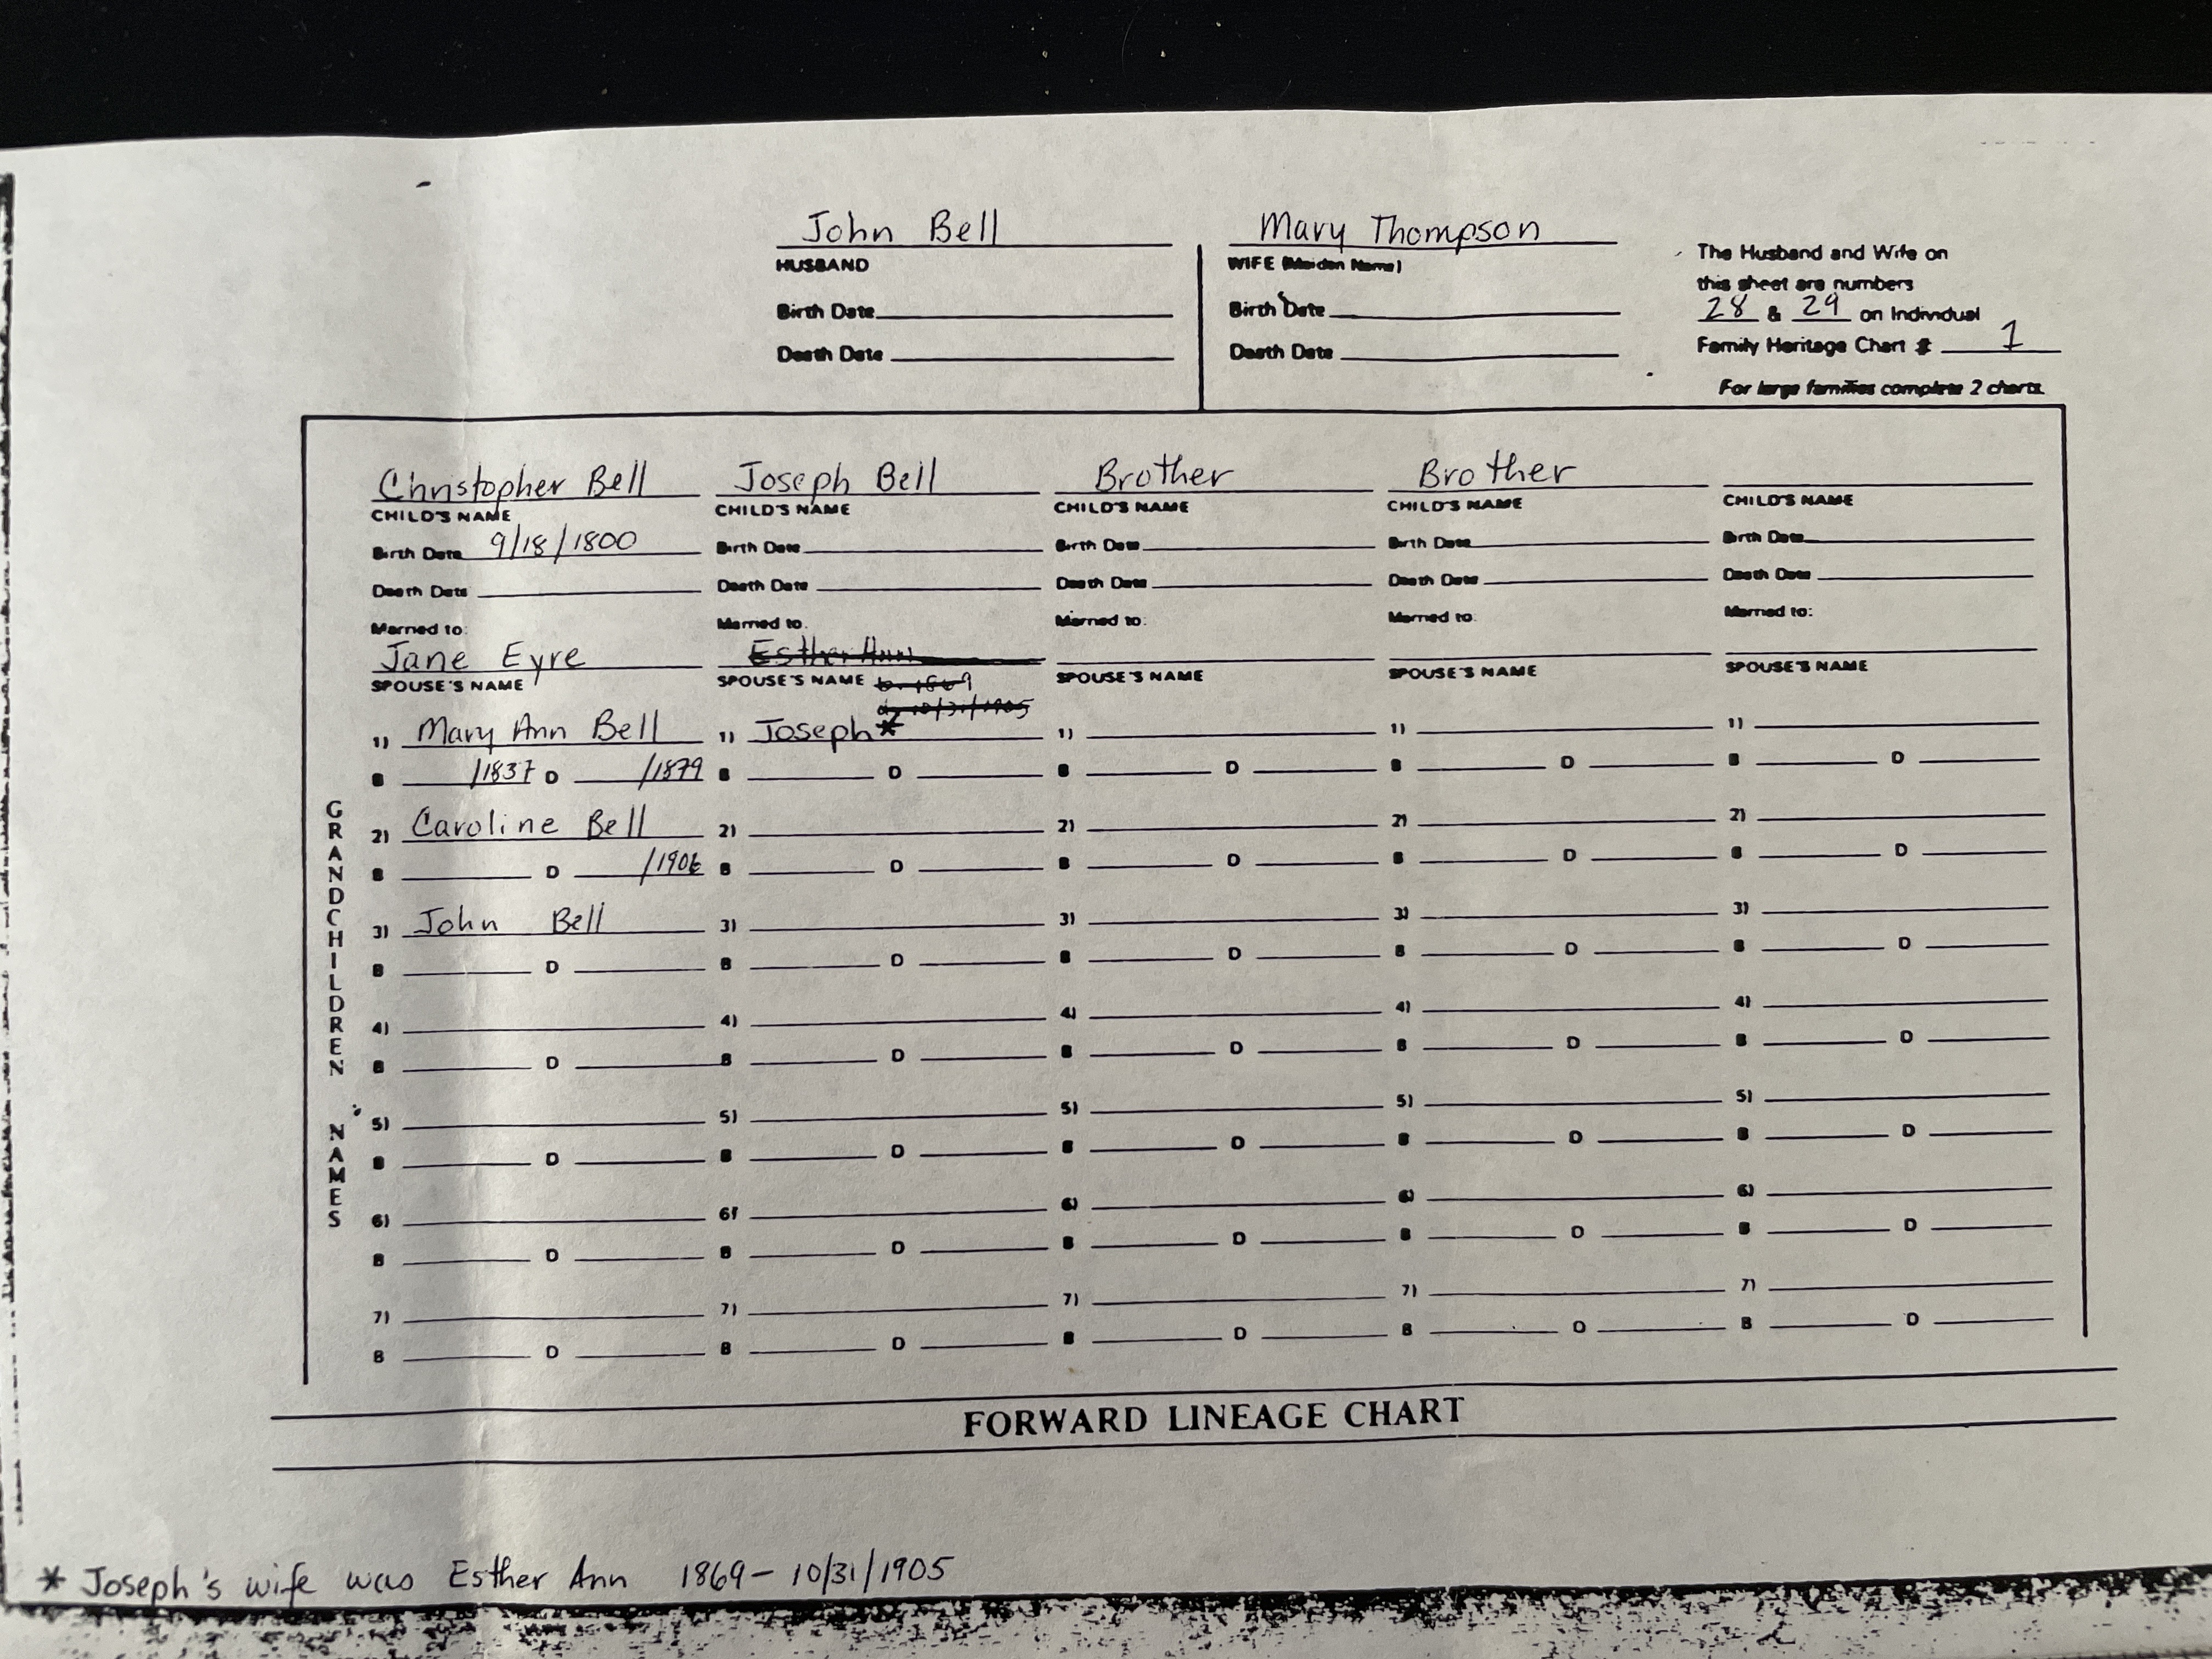 John Bell
HUSBAND
Birth Date
Death Date
Mary Thompson
WIFE (Maiden Name)
Birth Date
Death Date
The Husband and Wife on
this sheet are numbers
28 & 29 on Individual
Family Heritage Chart # 1
For large families complete 2 charts
Christopher Bell
CHILD'S NAME
Birth Date 9/18/1800
Death Date
Married to:
Jane Eyre
SPOUSE'S NAME
GRANDCHILDREN NAMES
1) Mary Ann Bell
B /1837 D /1879
2) Caroline Bell
B D /1906
3) John Bell
B D
4)
B D
5)
B D
6)
B D
7)
B D
Joseph Bell
CHILD'S NAME
Birth Date
Death Date
Married to:
Esther Ann
SPOUSE'S NAME b. 1869
d. 10/31/1905
1) Joseph*
B D
2)
B D
3)
B D
4)
B D
5)
B D
6)
B D
7)
B D
Brother
CHILD'S NAME
Birth Date
Death Date
Married to:
SPOUSE'S NAME
1)
B D
2)
B D
3)
B D
4)
B D
5)
B D
6)
B D
7)
B D
Brother
CHILD'S NAME
Birth Date
Death Date
Married to:
SPOUSE'S NAME
1)
B D
2)
B D
3)
B D
4)
B D
5)
B D
6)
B D
7)
B D
CHILD'S NAME
Birth Date
Death Date
Married to:
SPOUSE'S NAME
1)
B D
2)
B D
3)
B D
4)
B D
5)
B D
6)
B D
7)
B D
FORWARD LINEAGE CHART
* Joseph's wife was Esther Ann 1869 - 10/31/1905